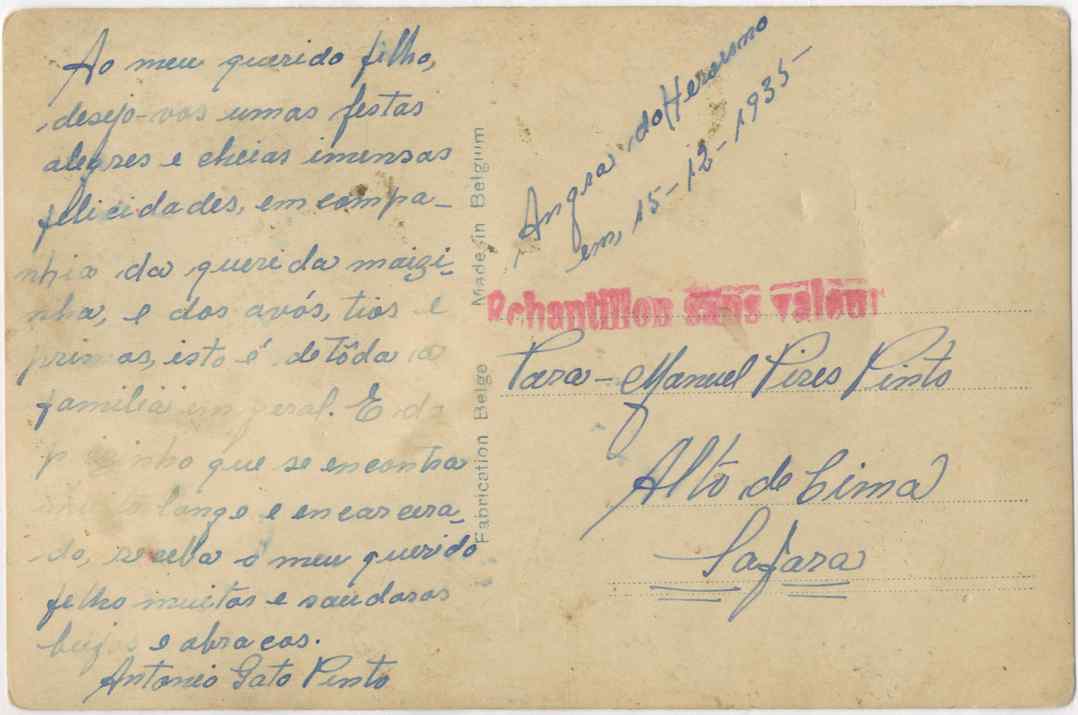 Ao meu querido filho,
desejo-vos umas festas
alegres e cheias imensas
felicidades, em compa-
nhia da querida maizi-
nha, e dos avós, tios e
primos, isto é de tôda a
familia em geral. E do
que se encontra
longe e encarcera-
do, receba o meu querido
filho muitos e saudosos
beijos e abracos.
Antonio Gato Pinto
Made in Belgium
Fabrication Belge
Angra do Heroismo
em, 15-12-1935-
Echantillon sans valeur
Para-Manuel Pires Pinto
Alto de Cima
Safara